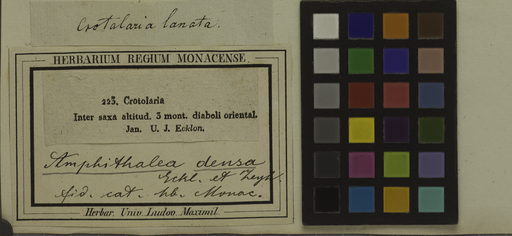 Crotalaria lanata.
HERBARIUM REGIUM MONACENSE.
223. Crotolaria
Inter saxa altitud. 3 mont. diaboli oriental.
Jan. U. J. Ecklon.
Amphithalea densa
Eckl. et Zeyh.
fid. cat. hb. Monac.
Herbar. Univ. Ludov. Maximil.